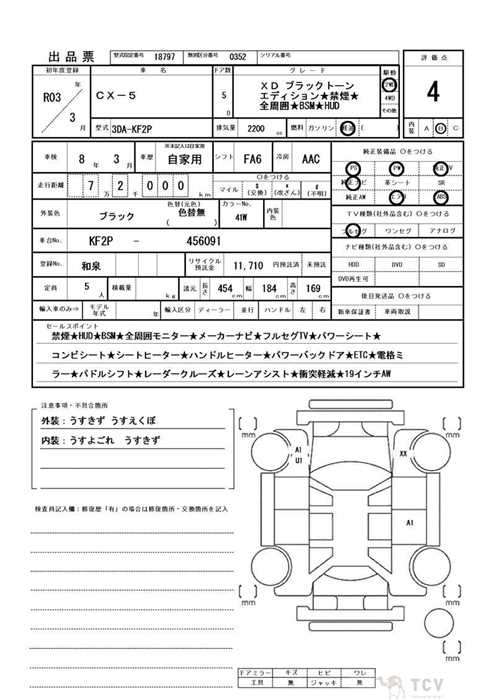 出品票 型式指定番号 18797 類別区分番号 0352 シリアル番号
初年度登録 車名 ドア数 グレード 駆動 評価点
R03 年 3 月 CX-5 5 D
XD ブラックトーン
エディション★禁煙★
全周囲★BSM★HUD
2WD
4WD
その他
4
型式 3DA-KF2P 排気量 2200 cc 燃料 ガソリン 軽油 E 内装 A B C
車検 8 年 3 月 車歴 ※未記入は自家用 自家用 シフト FA6 冷房 AAC
純正装備品 〇をつける
PS PW 純正TV
純正ナビ 革シート SR
純正AW エアB ABS
走行距離 7 万 2 千 0 0 0 km
〇をつける
マイル $ (交換) * (改ざん) # (不明)
TV種類(社外品含む) 〇をつける
フルセグ ワンセグ アナログ
外装色 ブラック 色替(元色) 色替無 カラーNo. 41W 内装色
車台No. KF2P - 456091
ナビ種類(社外品含む) 〇をつける
HDD DVD SD
DVD再生可
登録No. 和泉 リサイクル預託金 11,710 円預託済 未預託
定員 5 人 積載量 kg 諸元 長さ 454 cm 幅 184 cm 高さ 169 cm
後日発送品 〇をつける
輸入車のみ⇒ モデル年式 年 輸入区分 ディーラー 並行 ハンドル 左 右 新車保証書 車両取説
セールスポイント
禁煙★HUD★BSM★全周囲モニター★メーカーナビ★フルセグTV★パワーシート★
コンビシート★シートヒーター★ハンドルヒーター★パワーバックドア★ETC★電格ミ
ラー★パドルシフト★レーダークルーズ★レーンアシスト★衝突軽減★19インチAW
注意事項・不具合箇所
外装：うすきず うすえくぼ
内装：うすよごれ うすきず
検査員記入欄：修復歴「有」の場合は修復箇所・交換箇所を記入
mm mm
A1
U1
XX
A1
mm mm
ドアミラー キズ ヒビ ワレ
工具 無 ジャッキ 無
TCV